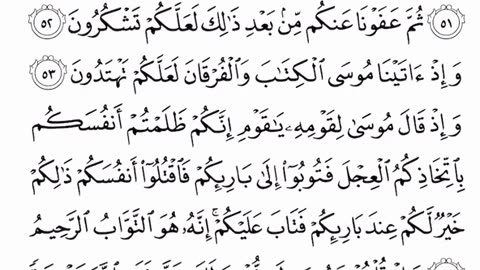 ۝٥١ ثُمَّ عَفَوْنَا عَنكُم مِّنۢ بَعْدِ ذَٰلِكَ لَعَلَّكُمْ تَشْكُرُونَ ۝٥٢
وَإِذْ ءَاتَيْنَا مُوسَى ٱلْكِتَٰبَ وَٱلْفُرْقَانَ لَعَلَّكُمْ تَهْتَدُونَ ۝٥٣
وَإِذْ قَالَ مُوسَىٰ لِقَوْمِهِۦ يَٰقَوْمِ إِنَّكُمْ ظَلَمْتُمْ أَنفُسَكُم
بِٱتِّخَاذِكُمُ ٱلْعِجْلَ فَتُوبُوٓا۟ إِلَىٰ بَارِئِكُمْ فَٱقْتُلُوٓا۟ أَنفُسَكُمْ ذَٰلِكُمْ
خَيْرٌ لَّكُمْ عِندَ بَارِئِكُمْ فَتَابَ عَلَيْكُمْ ۚ إِنَّهُۥ هُوَ ٱلتَّوَّابُ ٱلرَّحِيمُ